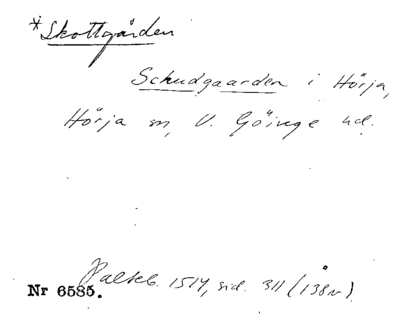 *Skottgården
Schudgaarden i Hörja,
Hörja sn, V. Göinge hd.
Palteb. 1514, sid. 311 (138v)
Nr 6585.